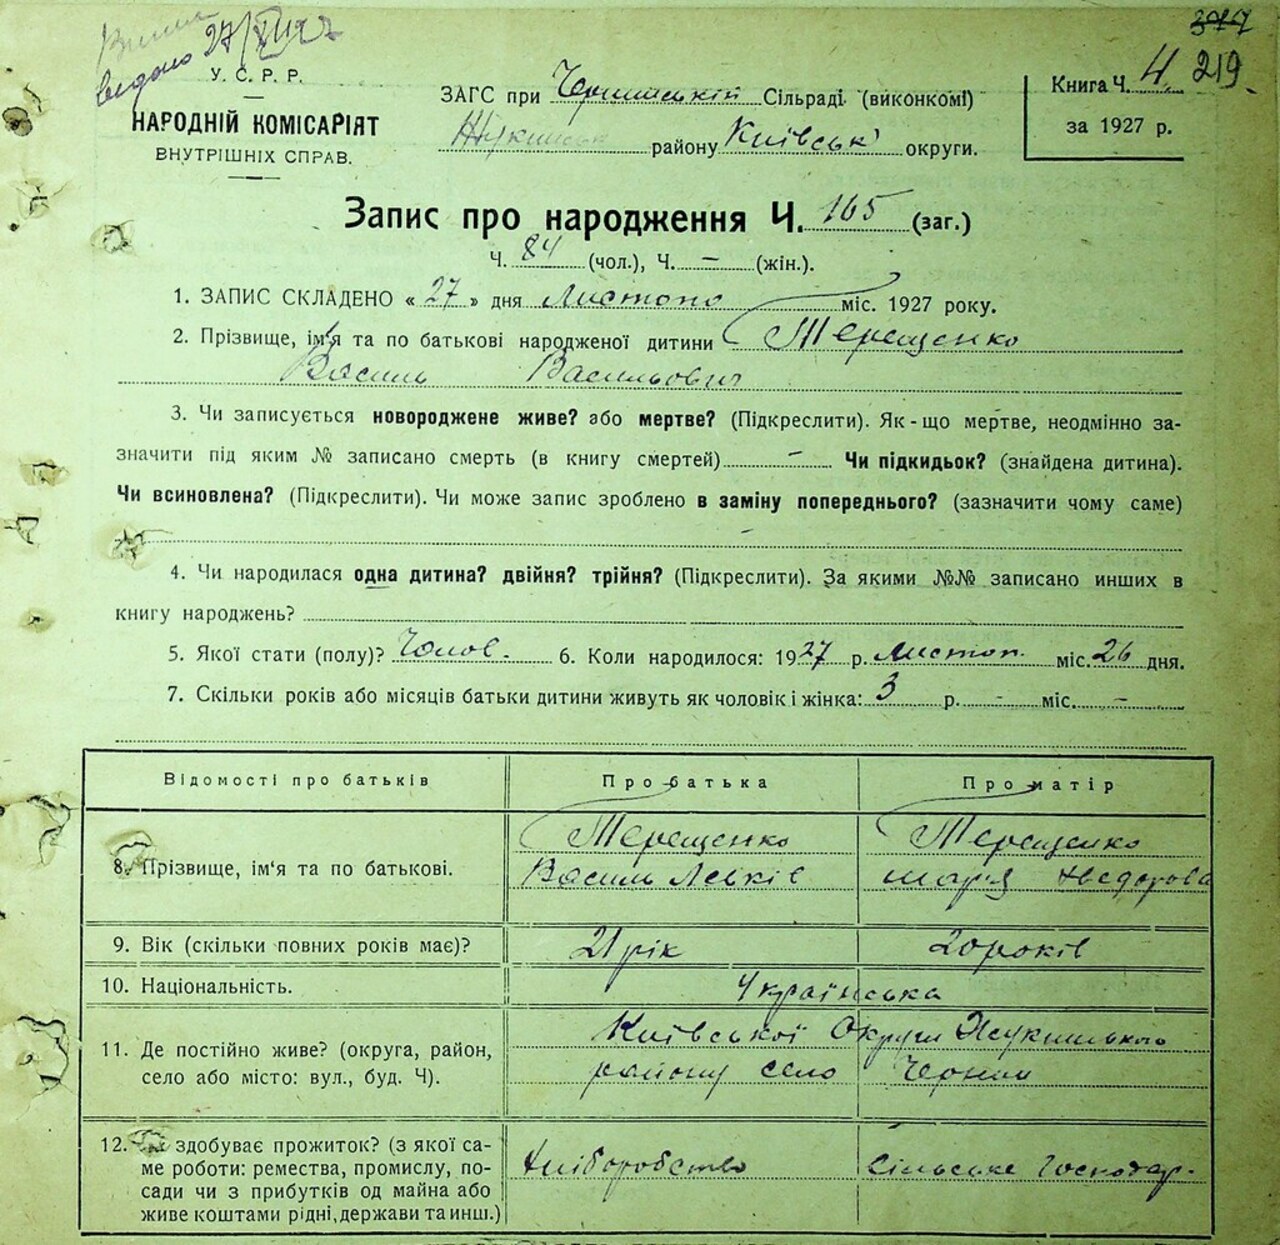 видано 27/XII 27
377
219
У. С. Р. Р.
НАРОДНІЙ КОМІСАРІЯТ
ВНУТРІШНІХ СПРАВ.
ЗАГС при Чернинській Сільраді (виконкомі)
Жукинськ району Київськ округи.
Книга Ч. 4
за 1927 р.
Запис про народження Ч. 165 (заг.)
Ч. 84 (чол.), Ч. — (жін.).
1. ЗАПИС СКЛАДЕНО « 27 » дня Листопо міс. 1927 року.
2. Прізвище, ім'я та по батькові народженої дитини Терещенко
Василь Васильович
3. Чи записується новороджене живе? або мертве? (Підкреслити). Як-що мертве, неодмінно за-
значити під яким № записано смерть (в книгу смертей) — Чи підкидьок? (знайдена дитина).
Чи всиновлена? (Підкреслити). Чи може запис зроблено в заміну попереднього? (зазначити чому саме)
4. Чи народилася одна дитина? двійня? трійня? (Підкреслити). За якими №№ записано инших в
книгу народжень?
5. Якої стати (полу)? Чолов. 6. Коли народилося: 1927 р. Листоп. міс. 26 дня.
7. Скільки років або місяців батьки дитини живуть як чоловік і жінка: 3 р. — міс. —
Відомості про батьків Про батька Про матір
8. Прізвище, ім'я та по батькові. Терещенко Терещенко
Василь Марія
9. Вік (скільки повних років має)? 21 рік 20 років
10. Національність. Українська
11. Де постійно живе? (округа, район, Київської Округи Жукинського
село або місто: вул., буд. Ч). району село Чернин
12. здобуває прожиток? (з якої са-
ме роботи: ремества, промислу, по- Хліборобство Сільське Господар.
сади чи з прибутків од майна або
живе коштами рідні, держави та инш.)